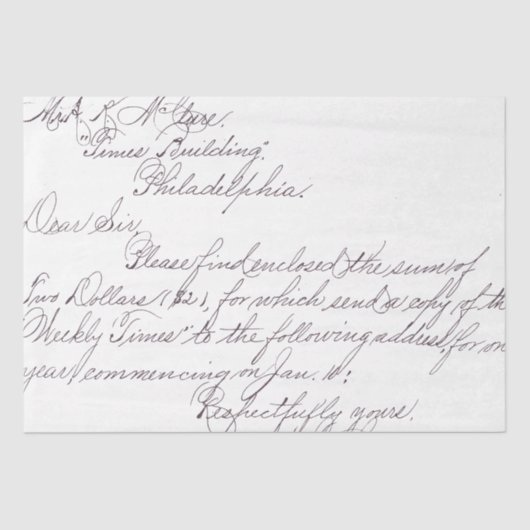 Mr. A. K. McClure.
"Times Building".
Philadelphia.
Dear Sir,
Please find enclosed the sum of
Two Dollars ($2), for which send a copy of th
Weekly "Times" to the following address, for on
year, commencing on Jan. 10:
Respectfully yours.